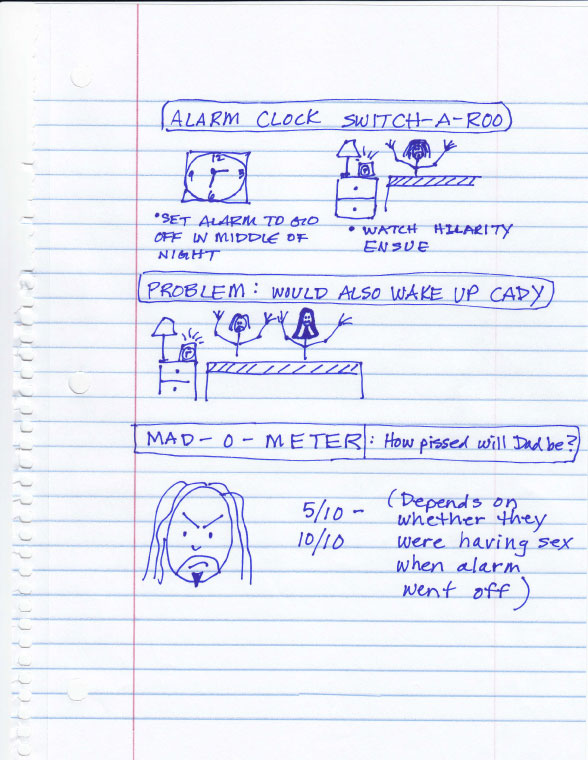 ALARM CLOCK SWITCH-A-ROO
12
9 3
6
•SET ALARM TO GO
OFF IN MIDDLE OF
NIGHT
• WATCH HILARITY
ENSUE
PROBLEM: WOULD ALSO WAKE UP CADY
MAD-O-METER: How pissed will Dad be?
5/10 -
10/10
(Depends on
whether they
were having sex
when alarm
went off)